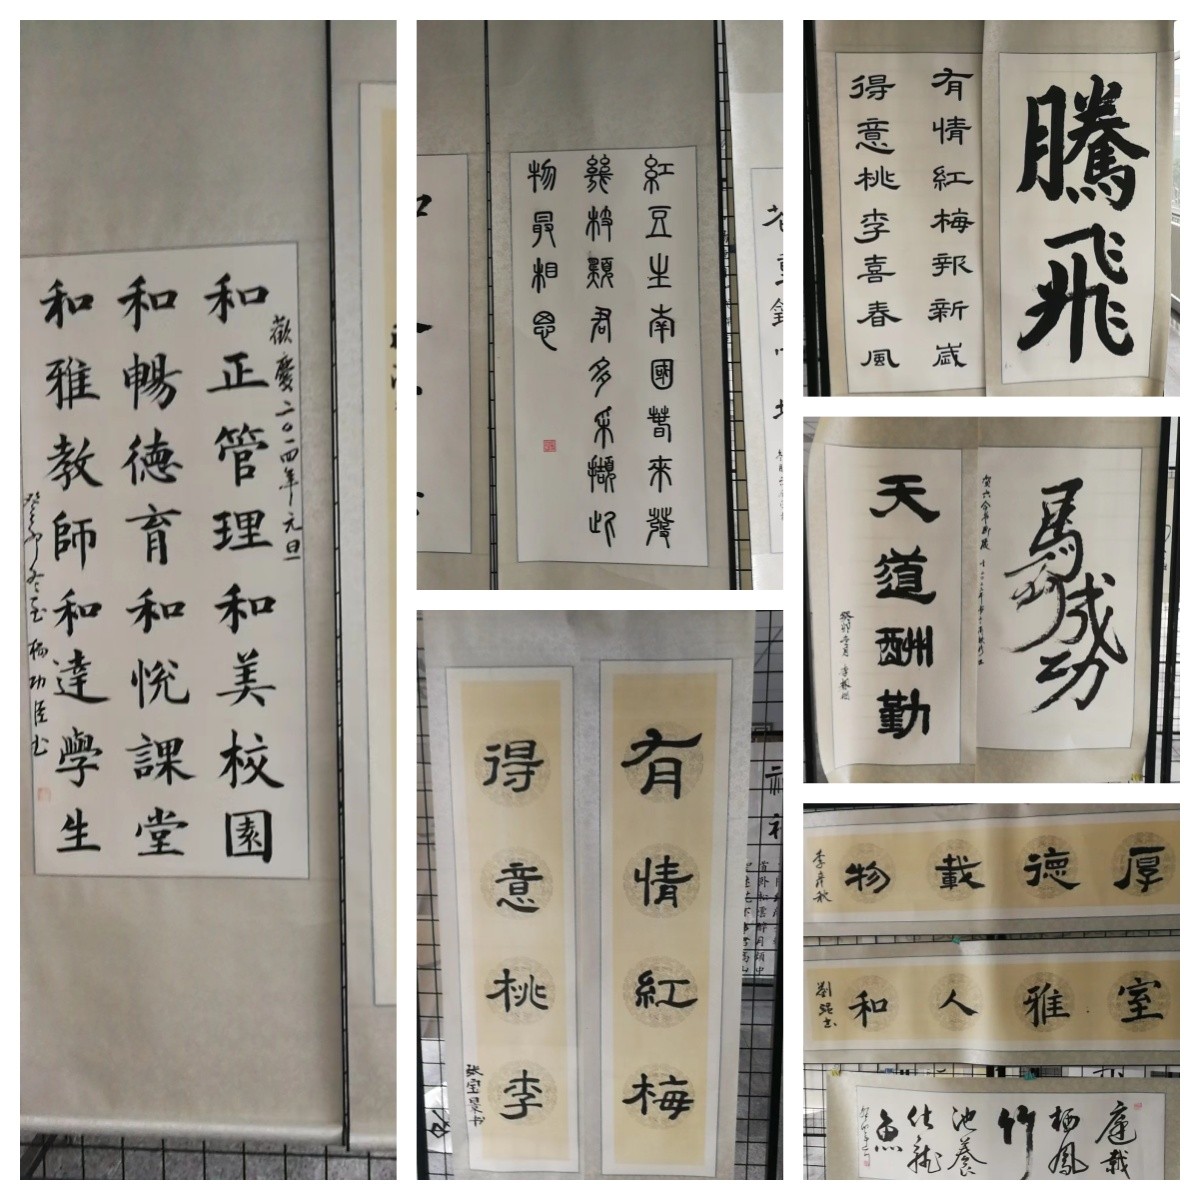 歡慶二〇二四年元旦
和正管理和美校園
和暢德育和悅課堂
和雅教師和達學生
癸卯冬至楊功臣书
紅豆生南國春來發
幾枝願君多采擷此
物最相思
有情紅梅報新歲
得意桃李喜春風
騰飛
馬到成功
天道酬勤
有情紅梅
得意桃李
厚德載物
李彦秋
室雅人和
庭栽
栖鳳
竹
池養
化龍
魚